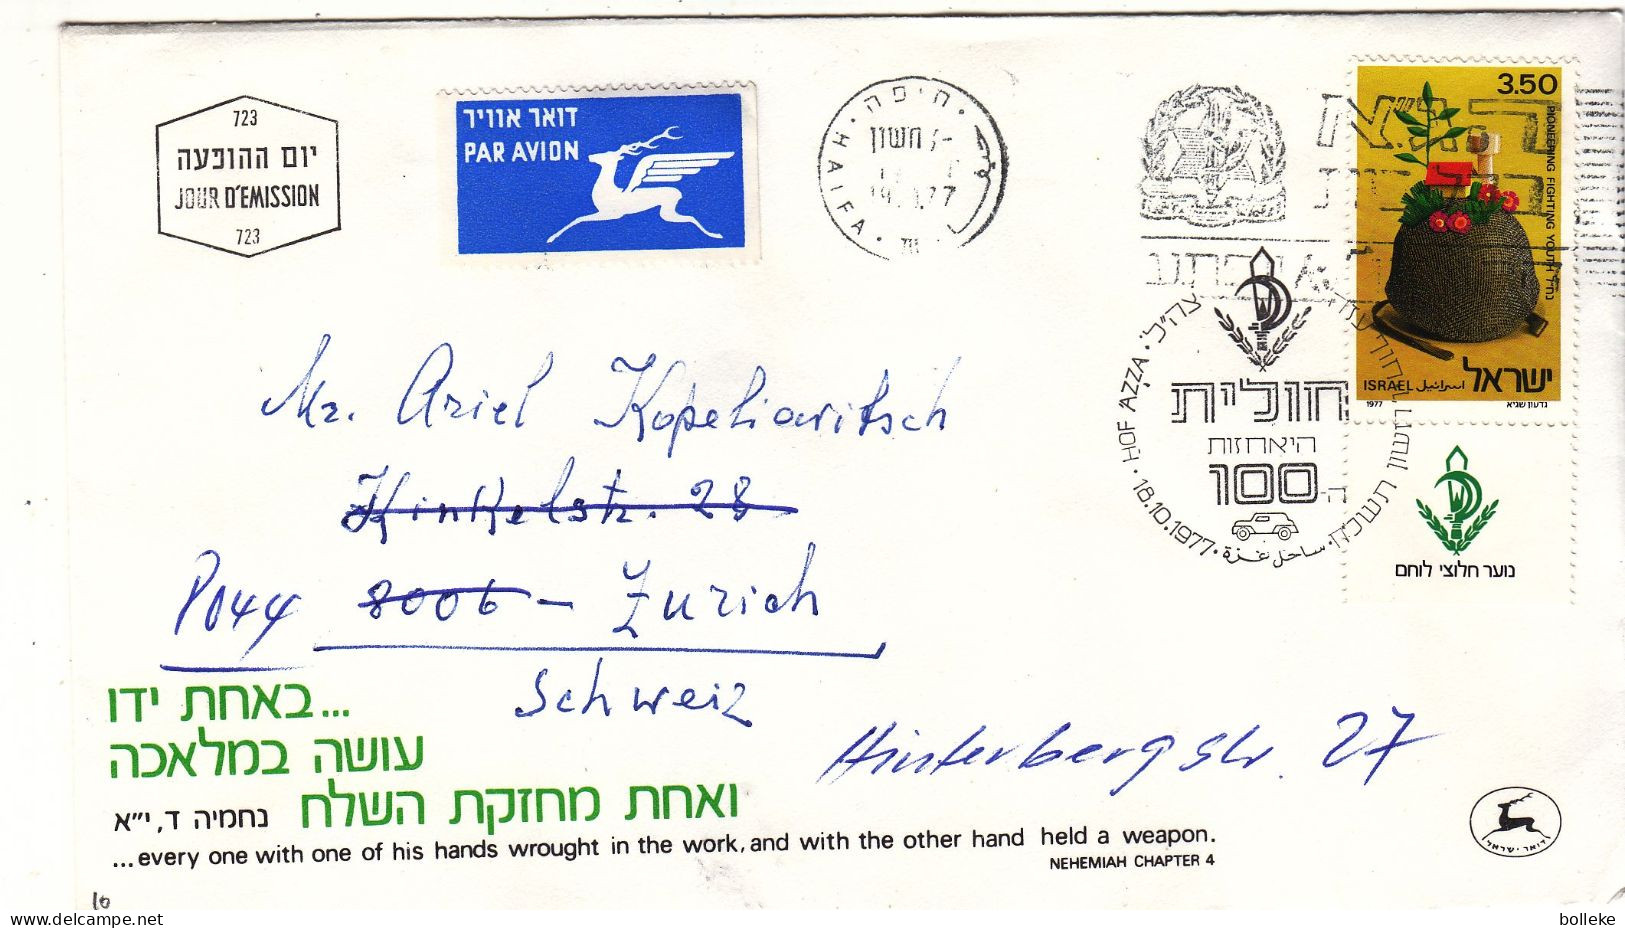 723
יום ההופעה
JOUR D'EMISSION
723
דואר אוויר
PAR AVION
חיפה
חשון
77
HAIFA
3.50
PIONEERING FIGHTING YOUTH נח"ל
ישראל
ISRAEL اسرائيل
1977
גדעון שגיא
צה"ל
HOF AZZA · 18.10.1977 · ساحل غزة
חולית
היאחזות
ה-100
נוער חלוצי לוחם
Mr. Ariel Kopeliovitsch
Hinkelstr. 28
8044 8006 - Zürich
Schweiz
Hinterbergstr. 27
...באחת ידו
עושה במלאכה
ואחת מחזקת השלח נחמיה ד, י"א
...every one with one of his hands wrought in the work, and with the other hand held a weapon.
NEHEMIAH CHAPTER 4
דואר · ישראל
10
bolleke